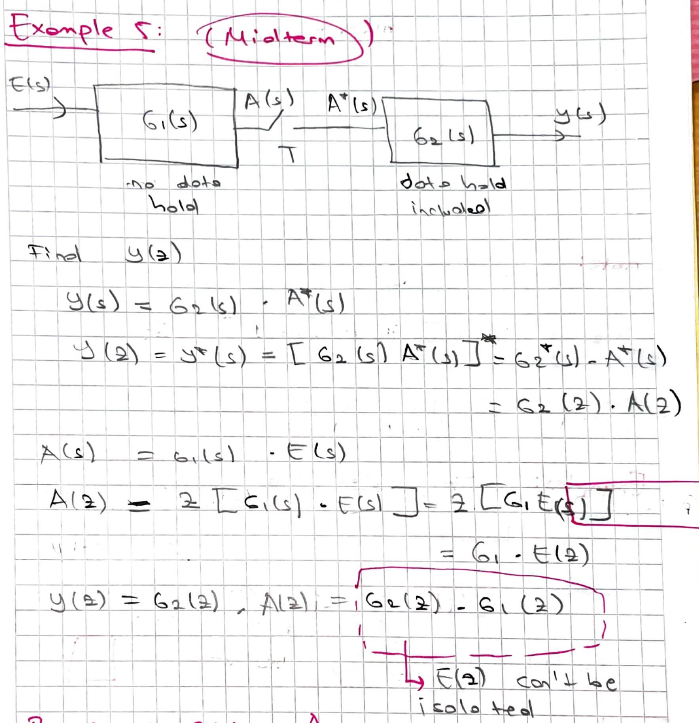 Example 5: (Midterm)
E(s) A(s) A*(s) Y(s)
G1(s) G2(s)
T
no data data hold
hold included
Find Y(z)
Y(s) = G2(s) . A*(s)
Y(z) = Y*(s) = [G2(s) A*(s)]* = G2*(s) - A*(s)
= G2(z) . A(z)
A(s) = G1(s) . E(s)
A(z) = Z [G1(s) . E(s)] = Z [G1 E(s)]
= G1 . E(z)
Y(z) = G2(z) . A(z) = G2(z) - G1(z)
↳ E(z) can't be
isolated